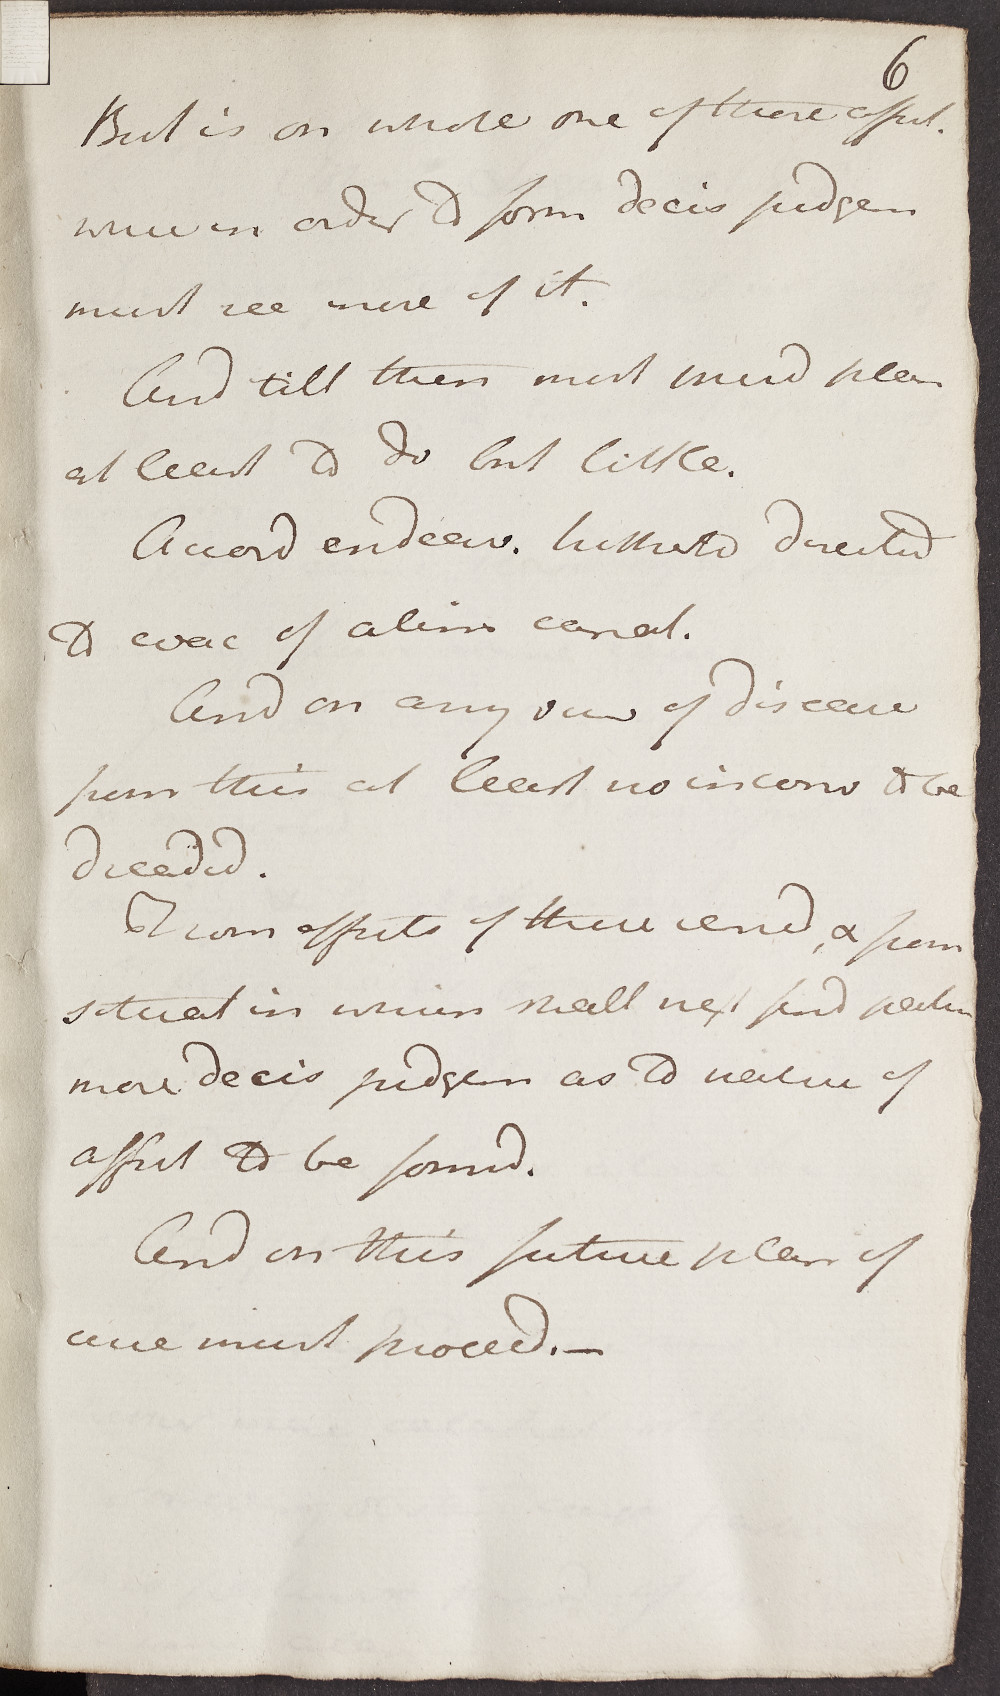 6
But is on whole one of those affect.
where in order to form decis judgem
must see more of it.
And till then must mind plan
at least to do but little.
Accord endeav. hitherto directed
to evac of alim canal.
And on any view of disease
from this at least no inconv to be
dreaded.
From effects of these remed, & from
situat in which shall next find patien
more decis judgem as to nature of
affect to be formd.
And on this future plan of
cure must proceed.—